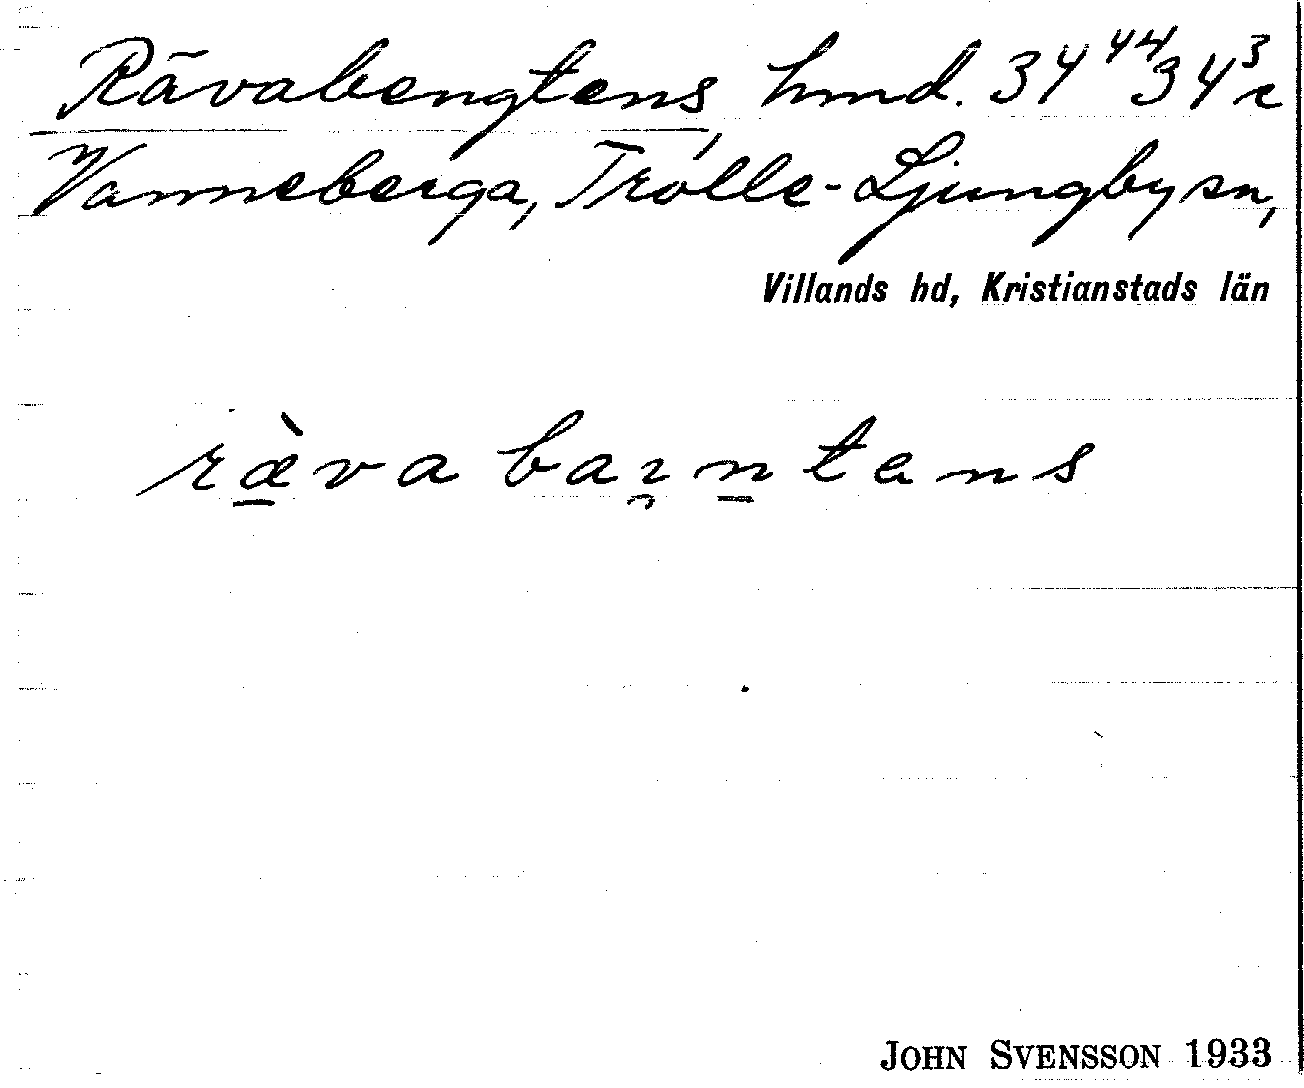 Rävabengtens, hmd. 34⁴⁴ 34³c
Vanneberga, Trolle-Ljungby sn,
Villands hd, Kristianstads län
ræ̠̀va baı̯n̠tens
JOHN SVENSSON 1933